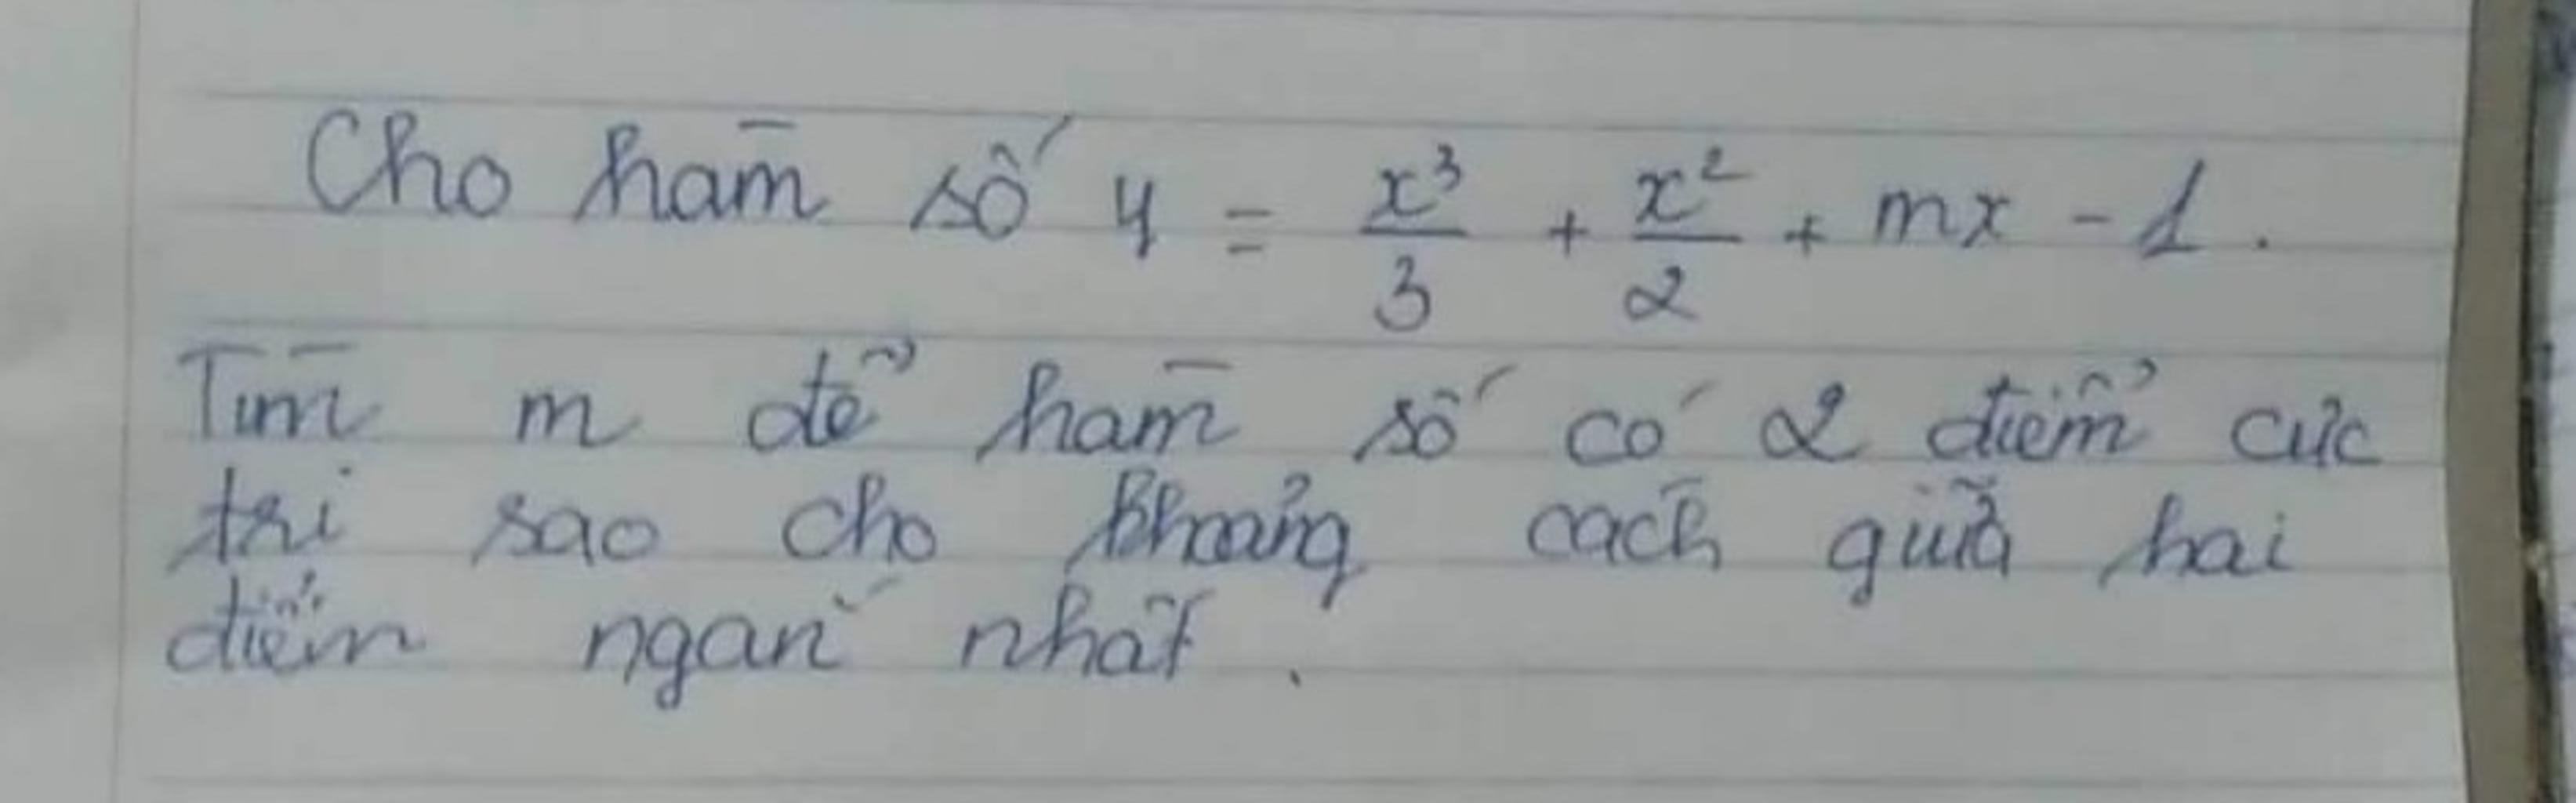 Cho hàm số y = x³/3 + x²/2 + mx - 1.
Tìm m để hàm số có 2 điểm cực
trị sao cho khoảng cách giữa hai
điểm ngắn nhất.